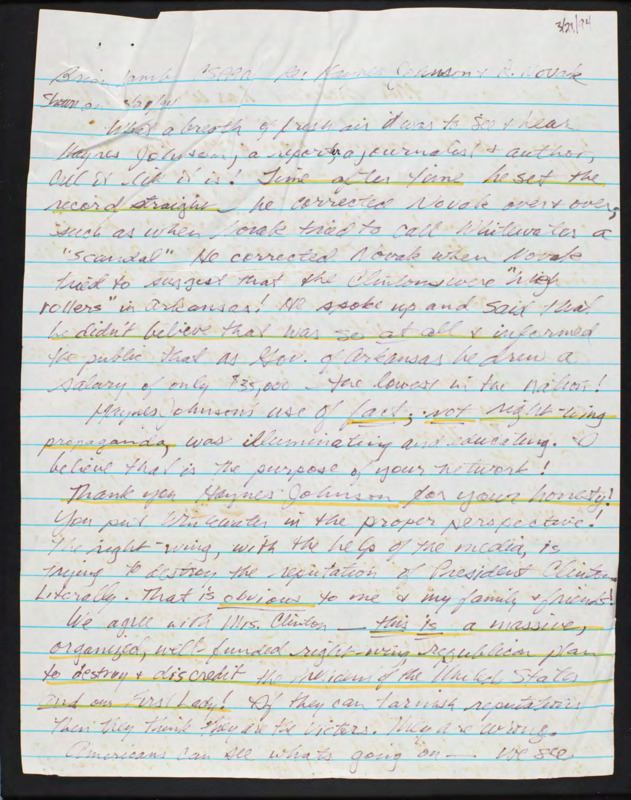 3/21/94
Brian Lamb CSPAN Re: Haynes Johnson & R. Novak
Show on
What a breath of fresh air it was to see & hear
Haynes Johnson, a reporter, a journalist & author,
tell it like it is! Time after time he set the
record straight he corrected Novak over & over,
such as when Novak tried to call Whitewater a
"scandal". He corrected Novak when Novak
tried to suggest that the Clintons were "high
rollers" in Arkansas! He spoke up and said that
he didn't believe that was so at all & informed
the public that as Gov. of Arkansas he drew a
salary of only $35,000 – the lowest in the nation!
Haynes Johnson's use of fact, not right-wing
propaganda, was illuminating and educating. I
believe that is the purpose of your network!
Thank you Haynes Johnson for your honesty!
You put Whitewater in the proper perspective!
The right-wing, with the help of the media, is
trying to destroy the reputation of President Clinton
Literally. That is obvious to me & my family & friends!
We agree with Mrs. Clinton — this is a massive,
organized, well-funded right-wing republican plan
to destroy & discredit the President of the United States
and our First Lady! If they can tarnish reputations
then they think they are the victors. They are wrong.
Americans can see whats going on — We see